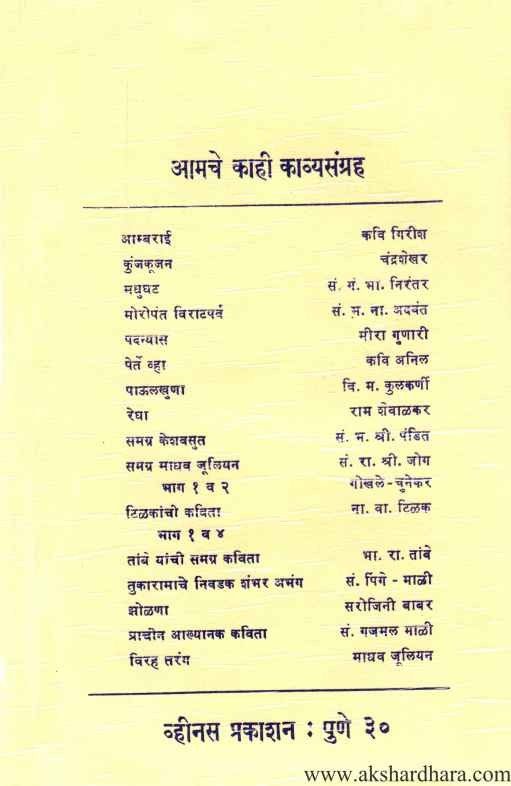 आमचे काही काव्यसंग्रह
आम्बराई कवि गिरीश
कुंजकूजन चंद्रशेखर
मधुघट सं. गं. भा. निरंतर
मोरोपंत विराटपर्व सं. म. ना. अदवंत
पदन्यास मीरा गुणारी
पेर्ते व्हा कवि अनिल
पाऊलखुणा वि. म. कुलकर्णी
रेघा राम शेवाळकर
समग्र केशवसुत सं. भ. श्री. पंडित
समग्र माधव जूलियन सं. रा. श्री. जोग
भाग १ व २ गोखले - चुनेकर
टिळकांची कविता ना. वा. टिळक
भाग १ व ४
तांबे यांची समग्र कविता भा. रा. तांबे
तुकारामाचे निवडक शंभर अभंग सं. पिंगे - माळी
झोळणा सरोजिनी बाबर
प्राचीन आख्यानक कविता सं. गजमल माळी
विरह तरंग माधव जूलियन
व्हीनस प्रकाशन : पुणे ३०
www.akshardhara.com